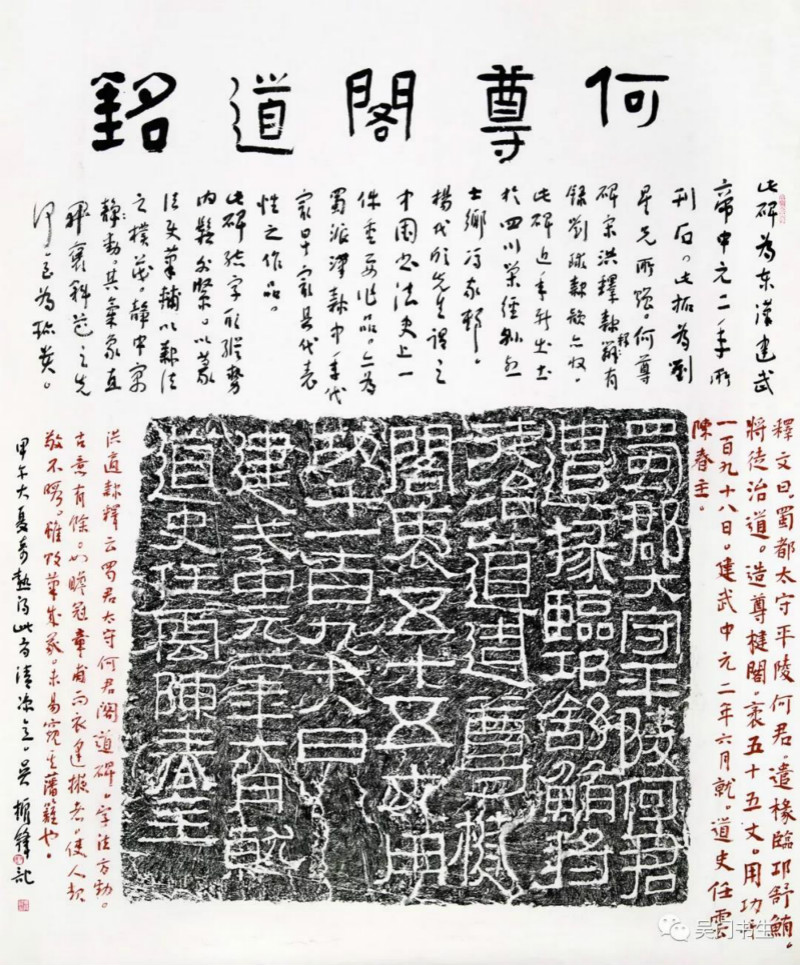 何尊閣道銘
此碑為東漢建武
帝中元二年所
刊石。此拓為劉
星兄所貽。何尊
碑宋洪釋隸釋有
錄劉球隸韻亦收。
此碑近年新出土
於四川榮經縣烈
士鄉馮家邨。
楊代欣先生謂之
中國書法史上一
件重要作品。亦為
蜀派漢隸中年代
最早最具代表
性之作品。
此碑結字取縱勢
内鬆外緊。以篆
法筆輔以隸法
之樸茂。靜中寓
靜動。其氣象直
開褒斜道之先
河至為珍貴。
釋文曰。蜀郡太守平陵何君。遣掾臨邛舒鮪。
將徒治道。造尊楗閣。袤五十五丈。用功千
一百九十八日。建武中元二年六月就。道史任雲
陳春主。
蜀郡大守平陵何君
遣掾臨邛舒鮪將
徒治道造尊楗
閣袤五十五丈用
功千一百九十八日
建武中元二年六月就
道史任雲陳春主
洪适隸釋云蜀君太守何君閣道碑。字法方勁。
古意有餘。如瞻冠章甫而衣逢掖者。使人起
敬不暇。雖敗筆成冢。未易窺其藩籬也。
甲午大夏奇熱得此為清涼意。吳振鋒記
吴门书生